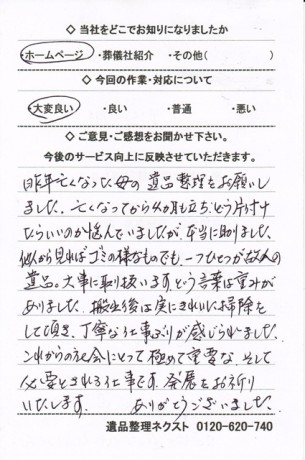 ◇ 当社をどこでお知りになりましたか
・ホームページ ・葬儀社紹介 ・その他( )
◇ 今回の作業・対応について
・大変良い ・良い ・普通 ・悪い
◇ ご意見・ご感想をお聞かせ下さい。
今後のサービス向上に反映させていただきます。
昨年亡くなった母の遺品整理をお願いし
ました。亡くなってから4ヵ月も立ち、どう片付け
たらいいのか悩んでいましたが本当に助りました。
他から見ればゴミの様なものでも、一つひとつが故人の
遺品。大事に取り扱います。という言葉は重みが
ありました。搬出後は実にきれいに掃除を
して頂き、丁寧な仕事ぶりが感じられました。
これからの社会にとって極めて重要な、そして
必要とされる仕事です。発展をお祈り
いたします。 ありがとうございました。
遺品整理ネクスト 0120-620-740